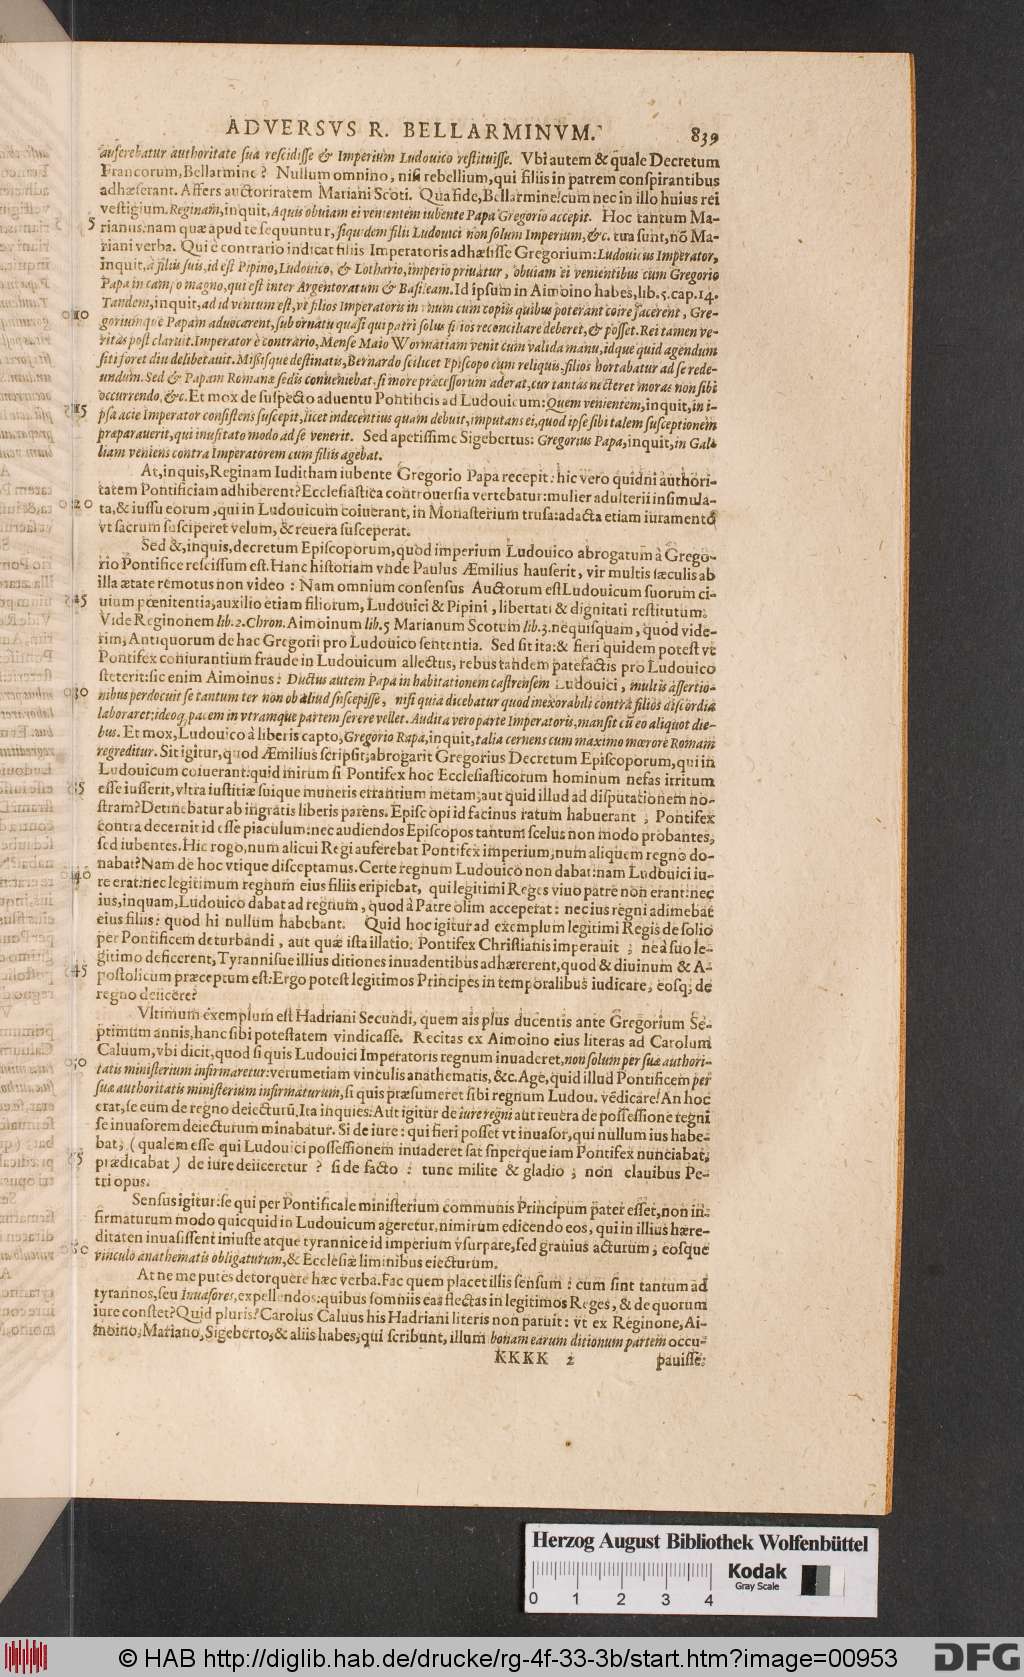 ADVERSVS R. BELLARMINVM. 839
auferebatur authoritate sua rescidisse & Imperium Ludouico restituisse. Vbi autem & quale Decretum
Francorum, Bellarmine? Nullum omnino, nisi rebellium, qui filiis in patrem conspirantibus
adhæserant. Affers auctoritatem Mariani Scoti. Qua fide, Bellarmine! cum nec in illo huius rei
vestigium. Reginam, inquit, Aquis obuiam ei venientem iubente Papa Gregorio accepit. Hoc tantum Ma-
5 rianus: nam quæ apud te sequuntur, siquidem filii Ludouici non solum Imperium, &c. tua sunt, nō Ma-
riani verba. Qui è contrario indicat filiis Imperatoris adhæsisse Gregorium: Ludouicus Imperator,
inquit, à filiis suis, id est Pipino, Ludouico, & Lothario, imperio priuatur, obuiam ei venientibus cum Gregorio
Papa in campo magno, qui est inter Argentoratum & Basileam. Id ipsum in Aimoino habes, lib. 5. cap. 14.
Tandem, inquit, ad id ventum est, vt filios Imperatoris in vnum cum copiis quibus poterant coire facerent, Gre-
10 goriumque Papam aduocarent, sub ornatu quasi qui patri solus filios reconciliare deberet, & posset. Rei tamen ve-
ritas post claruit. Imperator è contrario, Mense Maio Wormatiam venit cum valida manu, idque quid agendum
sit iforet diu delibetauit. Missisque destinatis, Bernardo scilicet Episcopo cum reliquis, filios hortabatur ad se rede-
undum. Sed & Papam Romanæ sedis conueniebat, si more præcessorum aderat, cur tantas necteret moras non sibi
occurrendo, &c. Et mox de suspecto aduentu Pontificis ad Ludouicum: Quem venientem, inquit, in i-
15 psa acie Imperator consistens suscepit, licet indecentius quam debuit, imputans ei, quod ipse sibi talem susceptionem
præparauerit, qui inusitato modo ad se venerit. Sed apertissime Sigebertus: Gregorius Papa, inquit, in Gal-
liam veniens contra Imperatorem cum filiis agebat.
At, inquis, Reginam Iuditham iubente Gregorio Papa recepit: hic vero quidni authori-
tatem Pontificiam adhiberent? Ecclesiastica controuersia vertebatur: mulier adulterii insimula-
20 ta, & iussu eorum, qui in Ludouicum coiuerant, in Monasterium trusa: adacta etiam iuramento
vt sacrum susciperet velum, & reuera susceperat.
Sed &, inquis, decretum Episcoporum, quod imperium Ludouico abrogatum à Grego-
rio Pontifice rescissum est. Hanc historiam vnde Paulus Æmilius hauserit, vir multis sæculis ab
illa ætate remotus non video: Nam omnium consensus Auctorum est Ludouicum suorum ci-
uium pœnitentia, auxilio etiam filiorum, Ludouici & Pipini, libertati & dignitati restitutum.
Vide Reginonem lib. 2. Chron. Aimoinum lib. 5 Marianum Scotum lib. 3. nequisquam, quod vide-
rim, Antiquorum de hac Gregorii pro Ludouico sententia. Sed sit ita: & fieri quidem potest vt
Pontifex coniurantium fraude in Ludouicum allectus, rebus tandem patefactis pro Ludouico
steterit: sic enim Aimoinus: Ductus autem Papa in habitationem castrensem Ludouici, multis assertio-
30 nibus perdocuit se tantum iter non ob aliud suscepisse, nisi quia dicebatur quod inexorabili contra filios discordia
laboraret; ideoq; pacem in vtramque partem serere vellet. Audita vero parte Imperatoris, mansit cū eo aliquot die-
bus. Et mox, Ludouico à liberis capto, Gregorio Rapa, inquit, talia cernens cum maximo mœrore Romam
regreditur. Sit igitur, quod Æmilius scripsit; abrogarit Gregorius Decretum Episcoporum, qui in
Ludouicum coiuerant: quid mirum si Pontifex hoc Ecclesiasticorum hominum nefas irritum
35 esse iusserit, vltra iustitiæ suique muneris errantium metam; aut quid illud ad disputationem no-
stram? Detinebatur ab ingratis liberis parens. Episcopi id facinus ratum habuerant; Pontifex
contra decernit id esse piaculum: nec audiendos Episcopos tantum scelus non modo probantes,
sed iubentes. Hic rogo, num alicui Regi auferebat Pontifex imperium; num aliquem regno do-
nabat? Nam de hoc vtique disceptamus. Certe regnum Ludouico non dabat: nam Ludouici iu-
40 re erat: nec legitimum regnum eius filiis eripiebat, qui legitimi Reges viuo patre non erant: nec
ius, inquam, Ludouico dabat ad regnum, quod à Patre olim acceperat: nec ius regni adimebat
eius filiis: quod hi nullum habebant. Quid hoc igitur ad exemplum legitimi Regis de solio
per Pontificem deturbandi, aut quæ ista illatio; Pontifex Christianis imperauit; ne à suo le-
gitimo deficerent; Tyrannisue illius ditiones inuadentibus adhærerent, quod & diuinum & A-
45 postolicum præceptum est: Ergo potest legitimos Principes in temporalibus iudicare, eosq; de
regno deiicere?
Vltimum exemplum est Hadriani Secundi, quem ais plus ducentis ante Gregorium Se-
ptimum annis, hanc sibi potestatem vindicasse. Recitas ex Aimoino eius literas ad Carolum
Caluum, vbi dicit, quod si quis Ludouici Imperatoris regnum inuaderet, non solum per suæ authori-
50 tatis ministerium infirmaretur: verumetiam vinculis anathematis, &c. Age, quid illud Pontificem per
suæ authoritatis ministerium infirmaturum, si quis præsumeret sibi regnum Ludou. vēdicare! An hoc
erat, se eum de regno deiecturū, Ita inquies: Aut igitur de iure regni aut reuera de possessione regni
se inuasorem deiecturum minabatur. Si de iure: qui fieri posset vt inuasor, qui nullum ius habe-
bat, (qualem esse qui Ludouici possessionem inuaderet sat superque iam Pontifex nunciabat,
55 prædicabat) de iure deiiceretur? si de facto: tunc milite & gladio; non clauibus Pe-
tri opus.
Sensus igitur: se qui per Pontificale ministerium communis Principum pater esset, non in-
firmaturum modo quicquid in Ludouicum ageretur, nimirum edicendo eos, qui in illius hære-
ditatem inuasissent iniuste atque tyrannice id imperium vsurpare, sed grauius acturum; eosque
60 vinculo anathematis obligaturum, & Ecclesiæ liminibus eiecturum.
At ne me putes detorquere hæc verba. Fac quem placet illis sensum: cum sint tantum ad
tyrannos, seu Inuasores, expellendos: quibus somniis eas flectas in legitimos Reges, & de quorum
iure constet? Quid pluris? Carolus Caluus his Hadriani literis non paruit: vt ex Reginone, Ai-
moino, Mariano, Sigeberto, & aliis habes, qui scribunt, illum bonam earum ditionum partem occu-
KKKK 2 pauisse:
Herzog August Bibliothek Wolfenbüttel
0 1 2 3 4
Kodak
Gray Scale
© HAB http://diglib.hab.de/drucke/rg-4f-33-3b/start.htm?image=00953
DFG